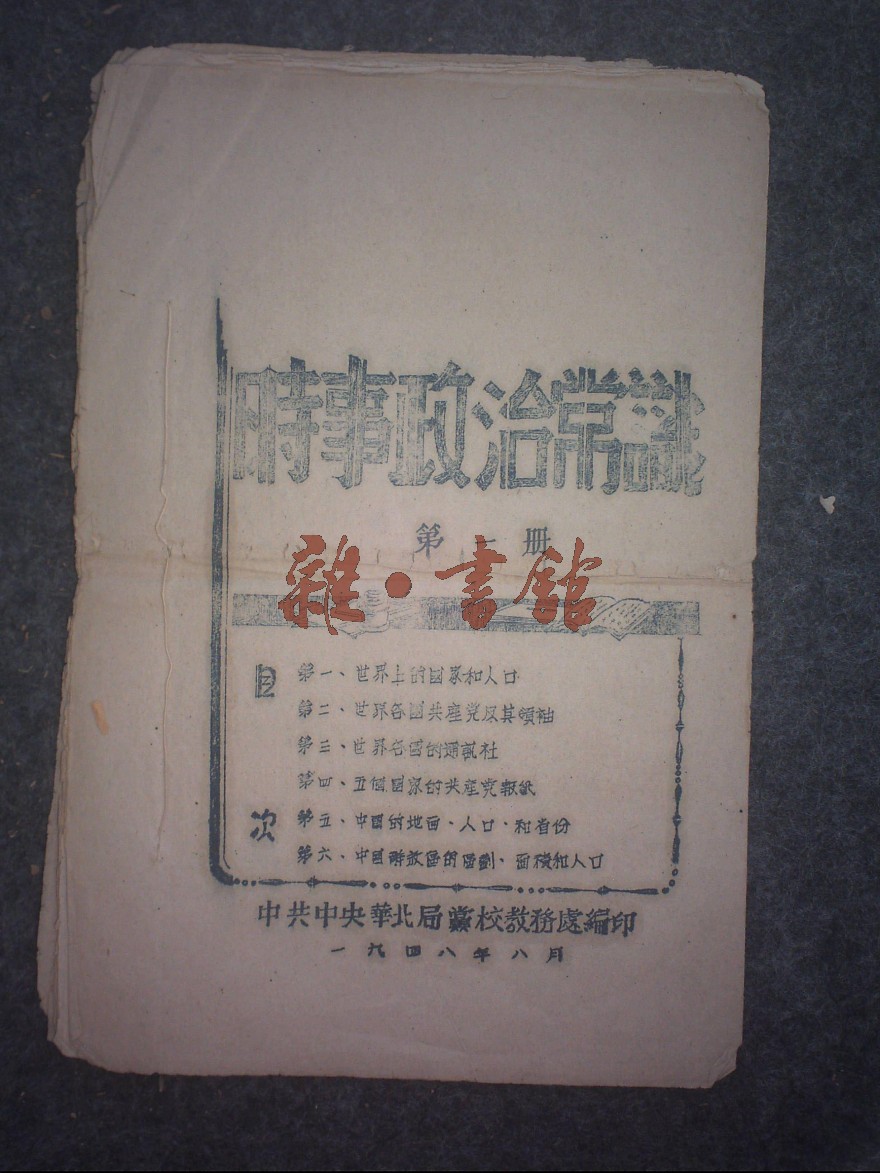 時事政治常識
第一册
雜·書館
目次
第一、世界上的國家和人口
第二、世界各國共產党及其領袖
第三、世界各国的通訊社
第四、五個國家的共產党報紙
第五、中國的地面、人口、和省份
第六、中國解放區的區劃、面積和人口
中共中央華北局黨校教務處編印
一九四八年八月